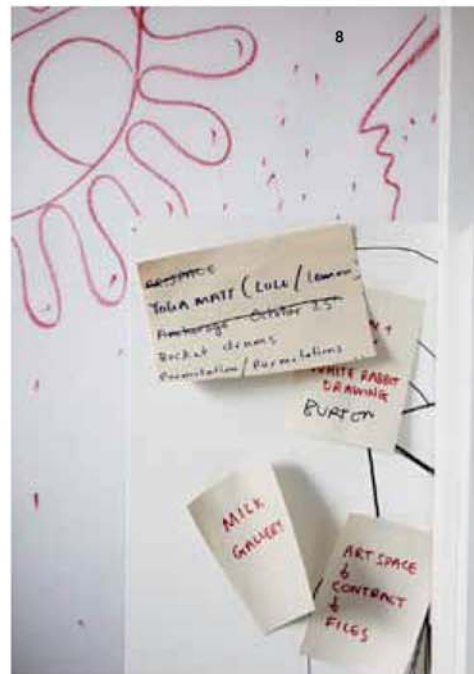 8
ARTSPACE
YOGA MATT (LULU/Lemon
Anchorage October 25
Bucket drums
Permutation/Permutations
WHITE RABBIT
DRAWING
BURTON
MILK
GALLERY
ART SPACE
&
CONTRACT
&
FILES